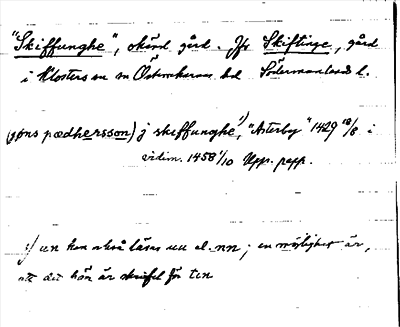 "Skiffunghe", okänd gård. Jfr Skiftinge, gård
i Klosters sn m Österrekarnes hd Södermanlands l.
(jøns pædhersson) j skeffunghe 1), "Asterby" 1429 18/8 i
vidim. 1458 1/10 Upp. papp.
1) un kan också läsas uu el. nn; en möjlighet är,
att det här är skrifel för tin